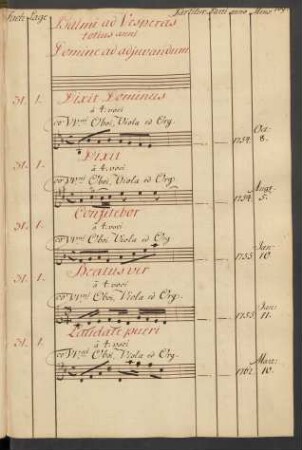 Psalmi ad Vesperas
totius anni
Domine ad adjuvandum
M. 1. Dixit Dominus
à 4. voci
co VV.ni Oboi, Viola ed Org.
1754. Oct: 8.
M. 1. Dixit
à 4. voci
co VV.ni Oboi, Viola ed Org.
1754. Augt: 5.
M. 1. Confitebor
à 4. voci
co VV.ni Oboi, Viola ed Org.
1755. Jan: 10.
M. 1. Beatus vir
à 4. voci
co VV.ni Oboi, Viola ed Org.
1755. Jan: 11.
M. 1. Laudate pueri
à 4. voci
co VV.ni Oboi, Viola ed Org.
1762. Mart: 10.